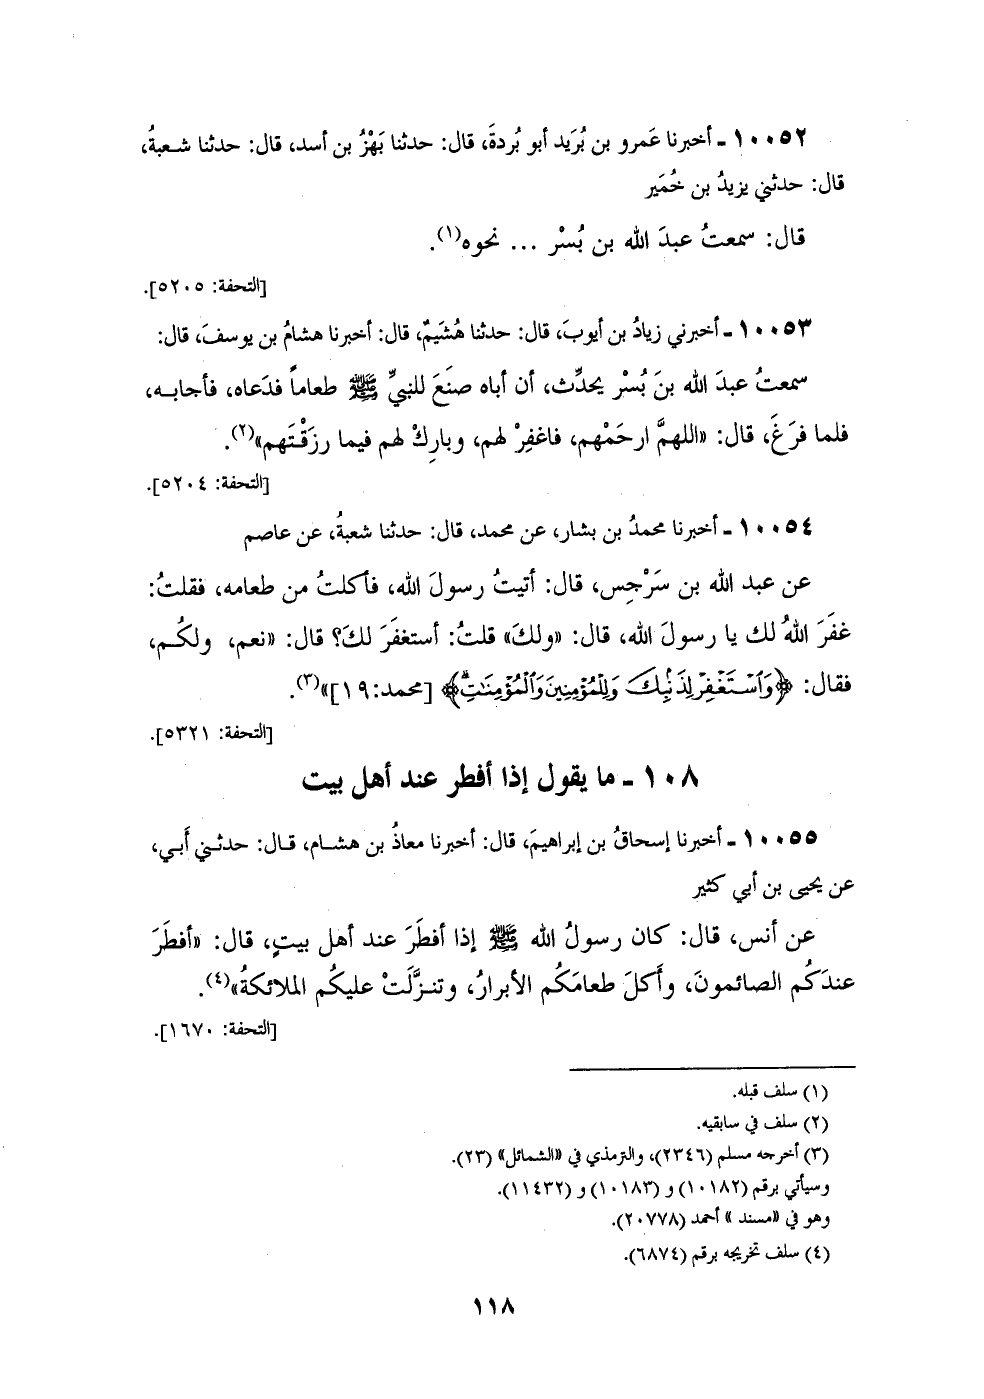 ١٠٠٥٢ ـ أخبرنا عَمرو بن بُرَيد أبو بُردةَ، قال: حدثنا بَهْزُ بن أسد، قال: حدثنا شعبةُ،
قال: حدثني يزيدُ بن خُمَير
قال: سمعتُ عبدَ الله بن بُسْر ... نحوه(١).
[التحفة: ٥٢٠٥].
١٠٠٥٣ ـ أخبرني زيادُ بن أيوبَ، قال: حدثنا هُشَيمٌ، قال: أخبرنا هشامُ بن يوسفَ، قال:
سمعتُ عبدَ الله بنَ بُسْر يحدِّث، أن أباه صنَعَ للنبيِّ ﷺ طعاماً فدَعاه، فأجابه،
فلما فرَغَ، قال: «اللهمَّ ارحَمْهم، فاغفِرْ لهم، وبارِكْ لهم فيما رزَقْتَهم»(٢).
[التحفة: ٥٢٠٤].
١٠٠٥٤ ـ أخبرنا محمدُ بن بشار، عن محمد، قال: حدثنا شعبةُ، عن عاصم
عن عبد الله بن سَرْجِس، قال: أتيتُ رسولَ الله، فأكلتُ من طعامه، فقلتُ:
غفَرَ اللهُ لك يا رسولَ الله، قال: «ولكَ» قلتُ: أستغفَرَ لكَ؟ قال: «نعم، ولكُم،
فقال: ﴿وَٱسۡتَغۡفِرۡ لِذَنۢبِكَ وَلِلۡمُؤۡمِنِينَ وَٱلۡمُؤۡمِنَٰتِۗ﴾ [محمد:١٩]»(٣).
[التحفة: ٥٣٢١].
١٠٨ ـ ما يقول إذا أفطر عند أهل بيت
١٠٠٥٥ ـ أخبرنا إسحاقُ بن إبراهيمَ، قال: أخبرنا معاذُ بن هشام، قال: حدثني أَبي،
عن يحيى بن أبي كثير
عن أنس، قال: كان رسولُ الله ﷺ إذا أفطَرَ عند أهل بيتٍ، قال: «أفطَرَ
عندَكُم الصائمونَ، وأَكلَ طعامَكُم الأبرارُ، وتنزَّلَتْ عليكُم الملائكةُ»(٤).
[التحفة: ١٦٧٠].
(١) سلف قبله.
(٢) سلف في سابقيه.
(٣) أخرجه مسلم (٢٣٤٦)، والترمذي في «الشمائل» (٢٣).
وسيأتي برقم (١٠١٨٢) و (١٠١٨٣) و (١١٤٣٢).
وهو في «مسند » أحمد (٢٠٧٧٨).
(٤) سلف تخريجه برقم (٦٨٧٤).
١١٨